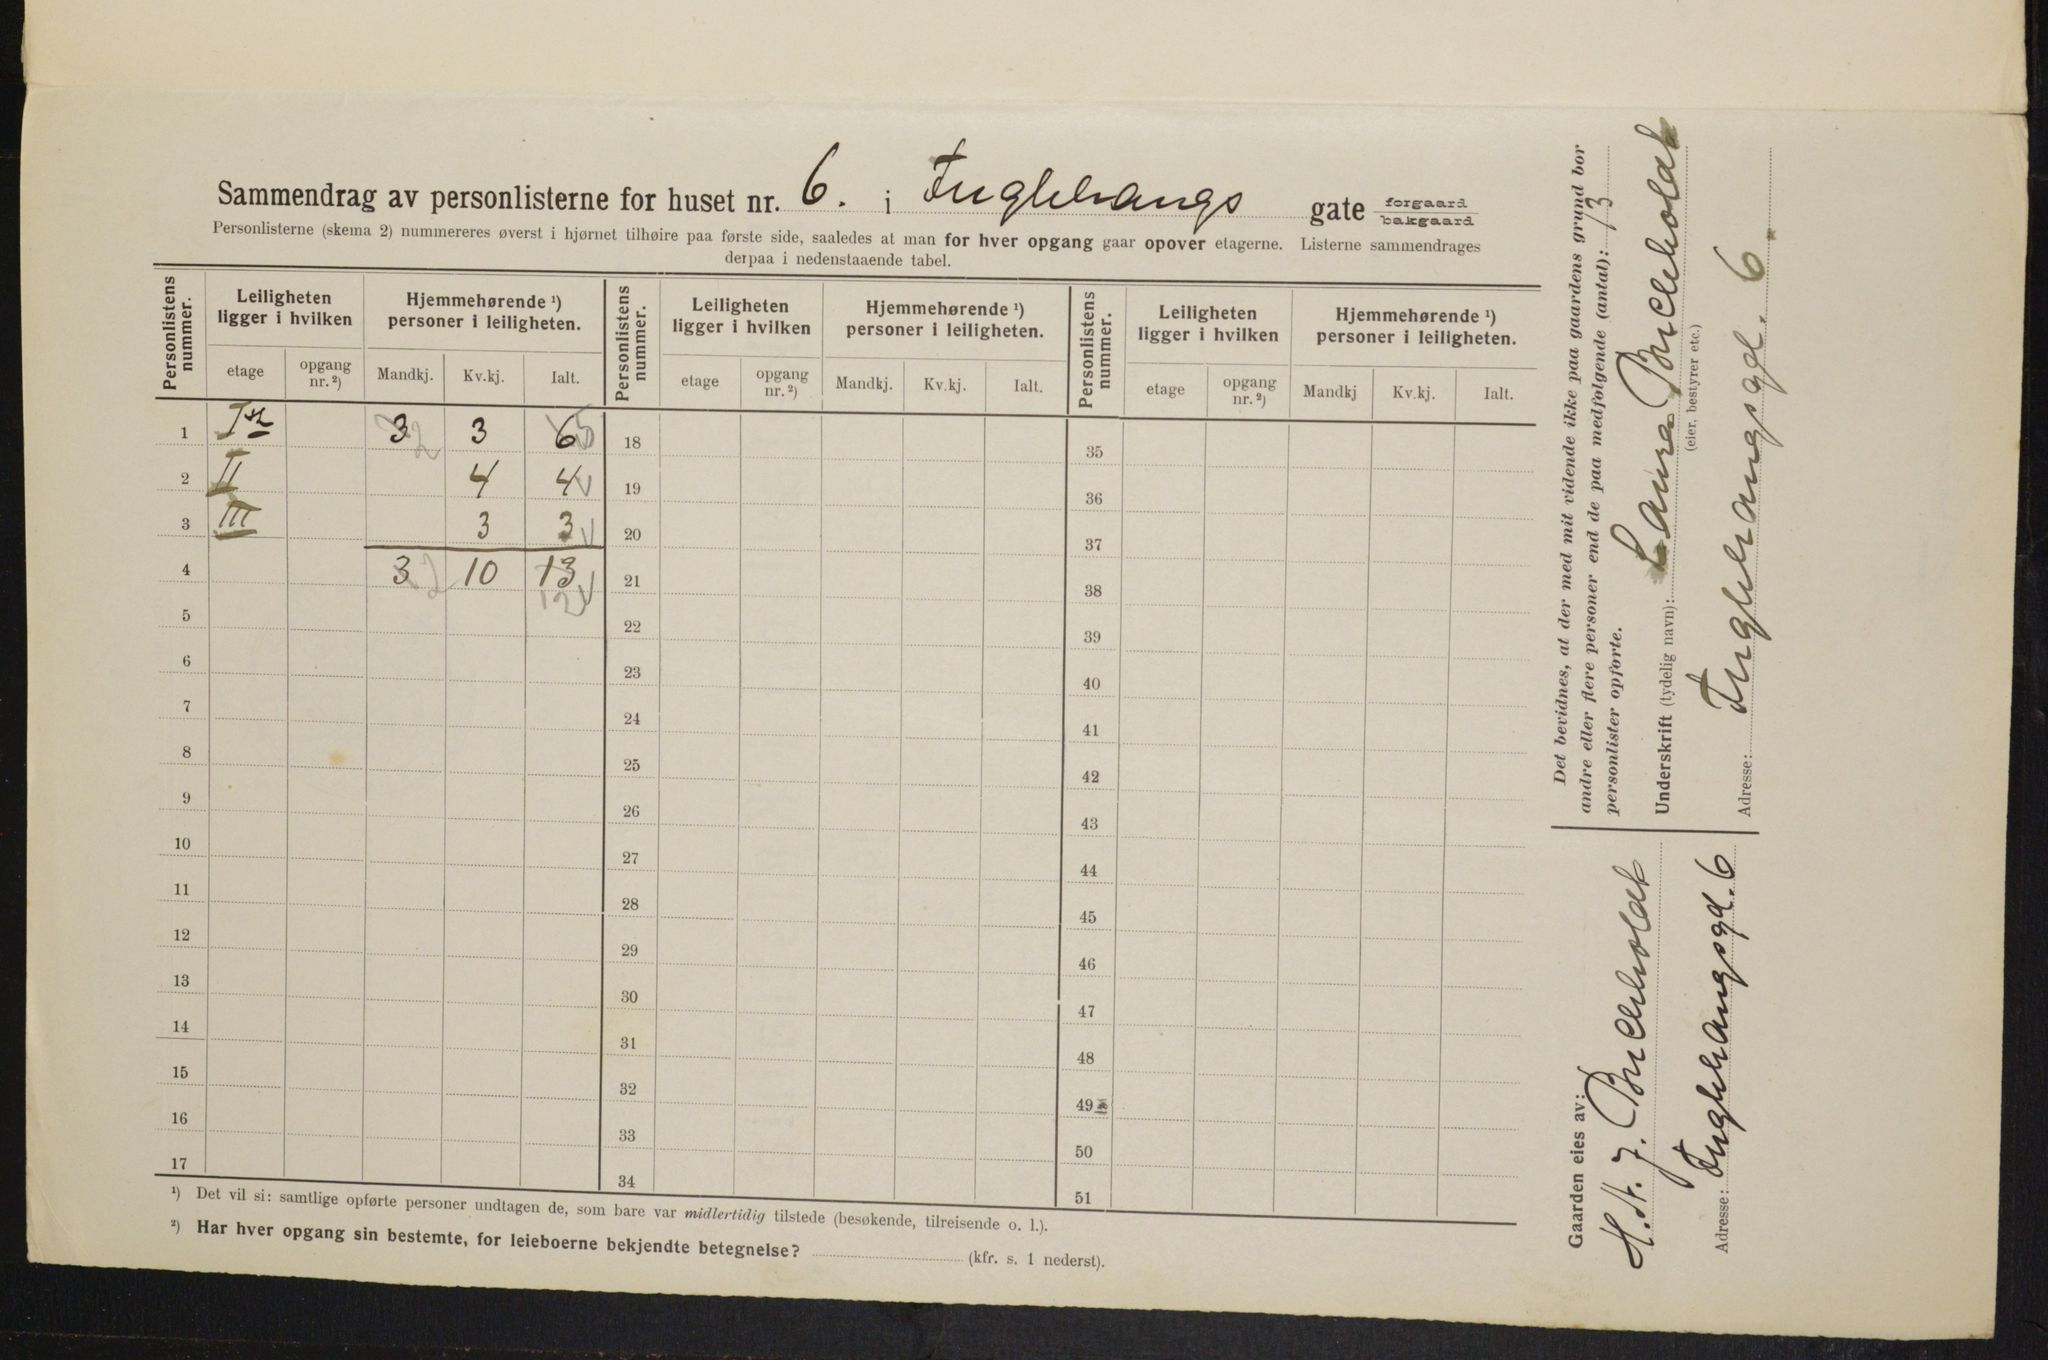 Sammendrag av personlisterne for huset nr. 6. i Fuglehangs gate forgaard bakgaard
Personlisterne (skema 2) nummereres øverst i hjørnet tilhøire paa første side, saaledes at man for hver opgang gaar opover etagerne. Listerne sammendrages
derpaa i nedenstaaende tabel.
Personlistens nummer. Leiligheten ligger i hvilken Hjemmehørende ¹) personer i leiligheten. Personlistens nummer. Leiligheten ligger i hvilken Hjemmehørende ¹) personer i leiligheten. Personlistens nummer. Leiligheten ligger i hvilken Hjemmehørende ¹) personer i leiligheten.
etage opgang nr. ²) Mandkj. Kv.kj. Ialt. etage opgang nr. ²) Mandkj. Kv.kj. Ialt. etage opgang nr. ²) Mandkj Kv.kj. Ialt.
1 I 3 2 3 6 5 18 35
2 II 4 4 19 36
3 III 3 3 20 37
4 3 2 10 13 21 38
12
5 22 39
6 23 40
7 24 41
8 25 42
9 26 43
10 27 44
11 28 45
12 29 46
13 30 47
14 31 48
15 32 49
16 33 50
17 34 51
¹) Det vil si: samtlige opførte personer undtagen de, som bare var midlertidig tilstede (besøkende, tilreisende o. l.).
²) Har hver opgang sin bestemte, for leieboerne bekjendte betegnelse? (kfr. s. 1 nederst).
Det bevidnes, at der med mit vidende ikke paa gaardens grund bor
andre eller flere personer end de paa medfølgende (antal): 13
personlister opførte.
Underskrift (tydelig navn): Laura Buchholdt
(eier, bestyrer etc.)
Adresse: Fuglehangsgd. 6
Gaarden eies av:
H. N. J. Buchholdt
Adresse: Fuglehangsgd. 6